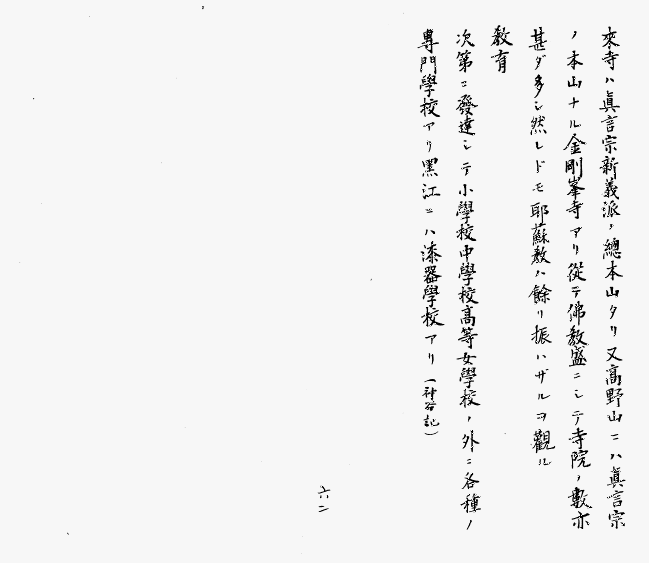 來寺ハ眞言宗新義派ノ總本山タリ又高野山ニハ眞言宗
ノ本山ナル金剛峯寺アリ從テ佛教盛ニシテ寺院ノ數亦
甚ダ多シ然レドモ耶蘇教ハ餘リ振ハザルヲ觀ル
教育
次第ニ發達シテ小學校中學校高等女學校ノ外ニ各種ノ
專門學校アリ黑江ニハ漆器學校アリ(神谷記)
六二